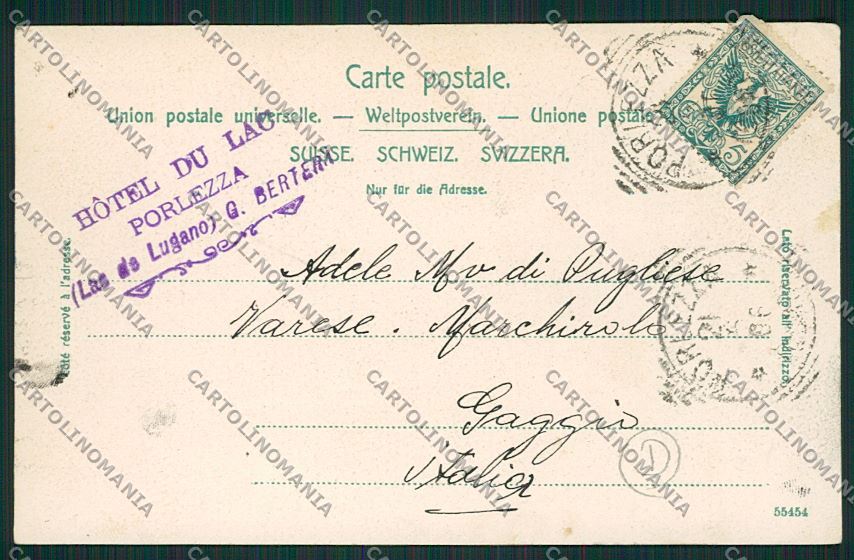 Carte postale.
Union postale universelle. — Weltpostverein. — Unione postale
SUISSE. SCHWEIZ. SVIZZERA.
Nur für die Adresse.
HÔTEL DU LAC
PORLEZZA
(Lac de Lugano) G. BERTERA
PORLEZZA
Côté réservé à l'adresse.
Lato riservato all' indirizzo.
Adele di Pugliese
Varese. Marchirolo
PORLEZZA
Gaggio
Italia
D
55454
CARTOLINOMANIA